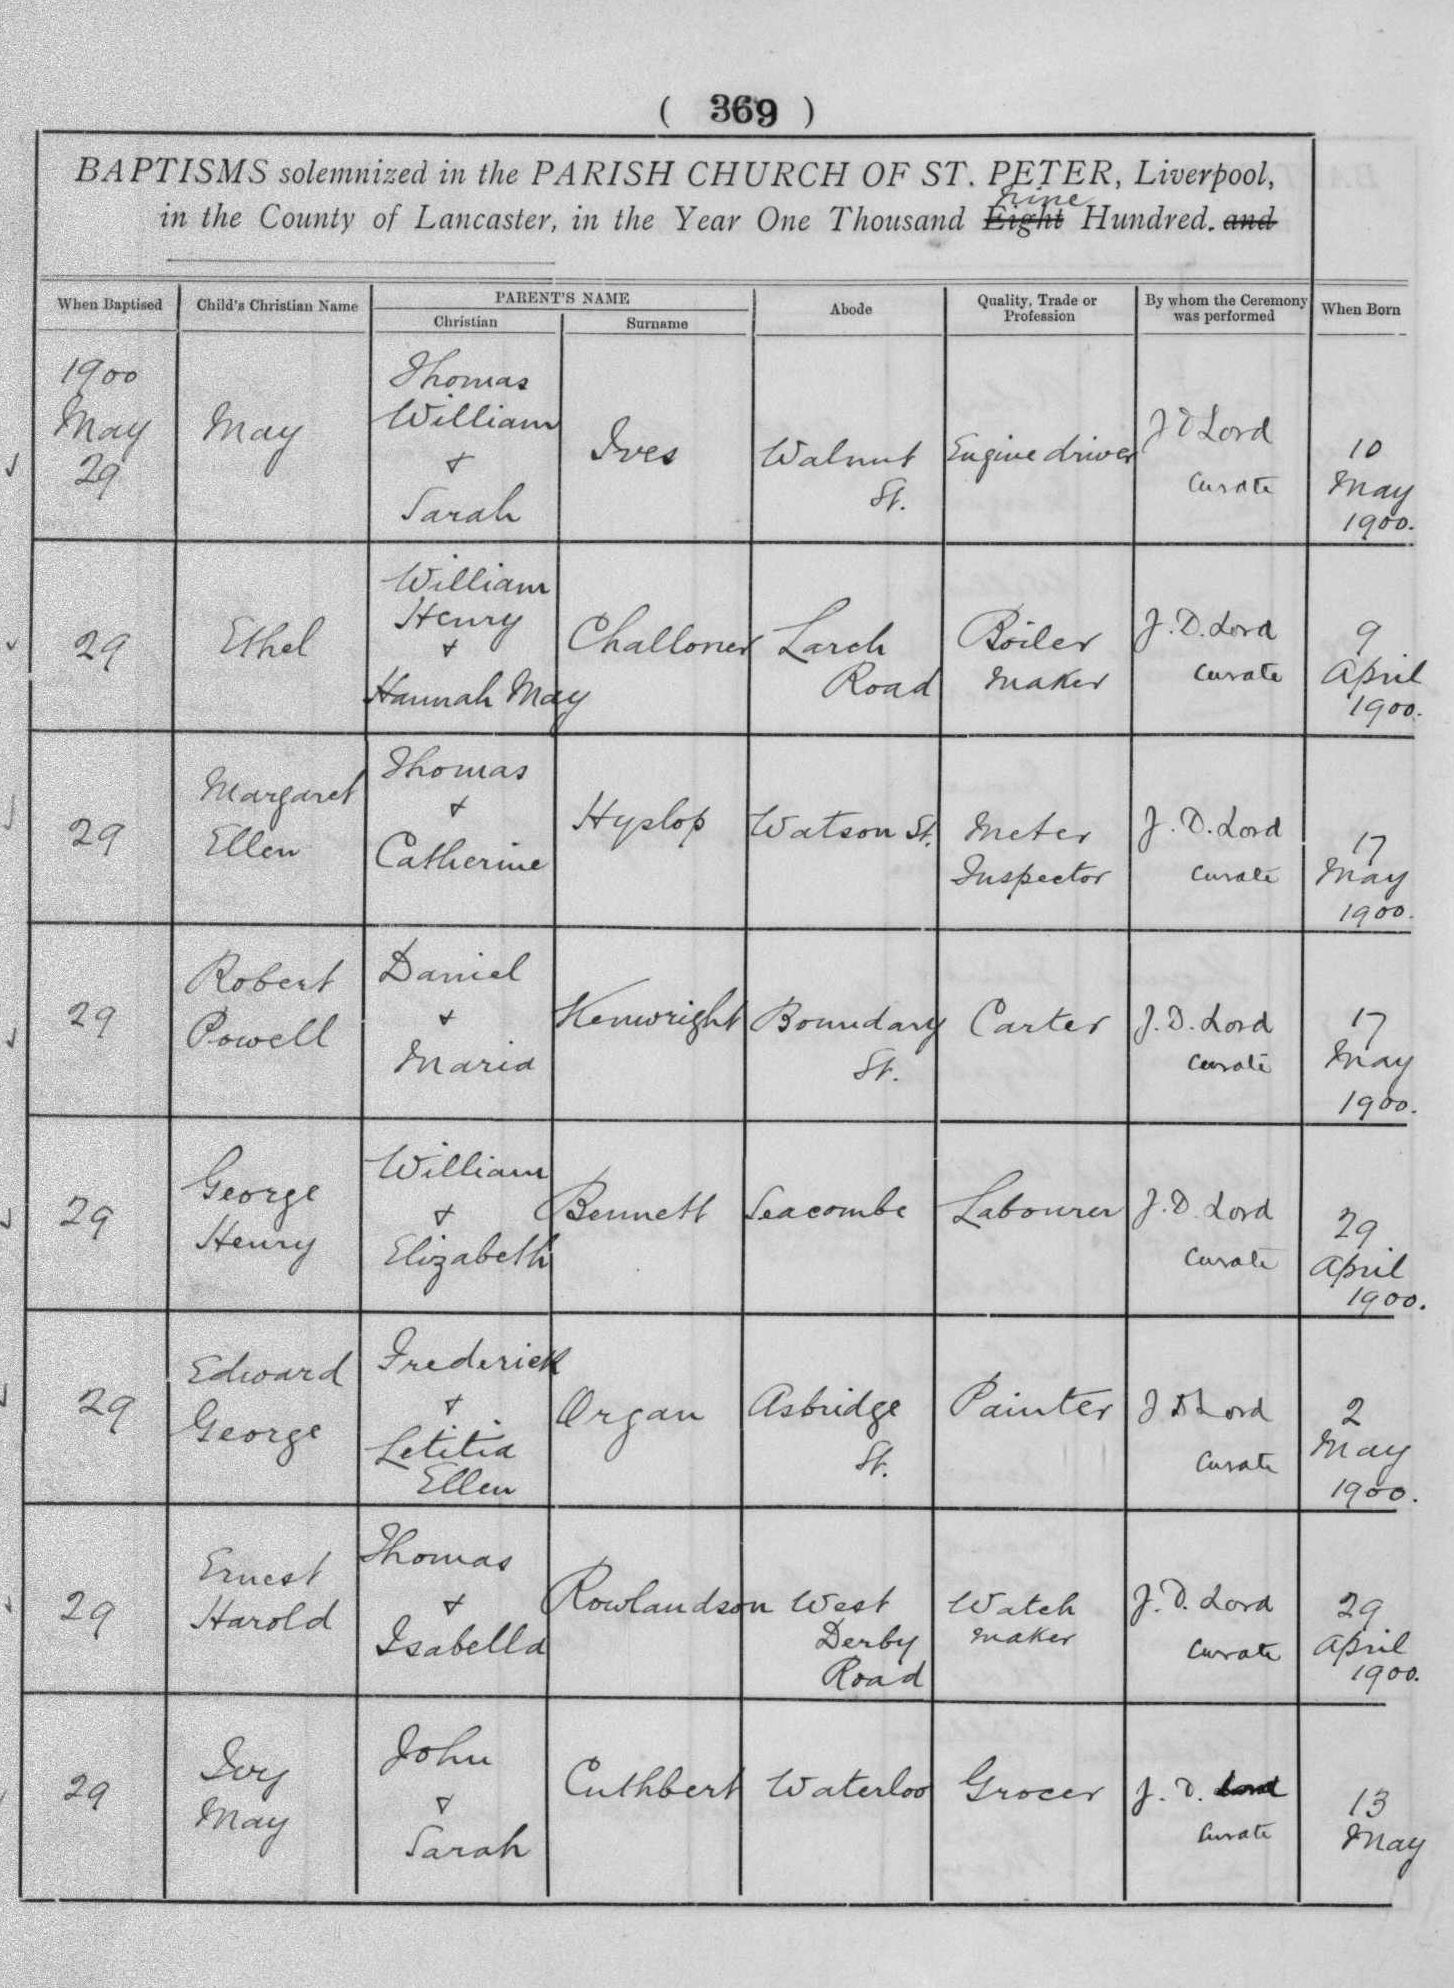 ( 369 )
BAPTISMS solemnized in the PARISH CHURCH OF ST. PETER, Liverpool,
nine
in the County of Lancaster, in the Year One Thousand Eight Hundred. and
When Baptised
Child's Christian Name
PARENT'S NAME
Christian
Surname
Abode
Quality, Trade or
Profession
By whom the Ceremony
was performed
When Born
1900
May
29
May
Thomas
William
+
Sarah
Ives
Walnut
St.
Engine driver
J D Lord
Curate
10
May
1900.
29
Ethel
William
Henry
+
Hannah May
Challoner
Larch
Road
Boiler
maker
J. D. Lord
Curate
9
April
1900.
29
Margaret
Ellen
Thomas
+
Catherine
Hyslop
Watson St.
Meter
Inspector
J. D. Lord
Curate
17
May
1900.
29
Robert
Powell
Daniel
+
Maria
Kenwright
Boundary
St.
Carter
J. D. Lord
Curate
17
May
1900.
29
George
Henry
William
+
Elizabeth
Bennett
Seacombe
Labourer
J. D. Lord
Curate
29
April
1900.
29
Edward
George
Frederick
+
Letitia
Ellen
Organ
Asbridge
St.
Painter
J D Lord
Curate
2
May
1900.
29
Ernest
Harold
Thomas
+
Isabella
Rowlandson
West
Derby
Road
Watch
maker
J. D. Lord
Curate
29
April
1900.
29
Ivy
May
John
+
Sarah
Cuthbert
Waterloo
Grocer
J. D. Lord
Curate
13
May